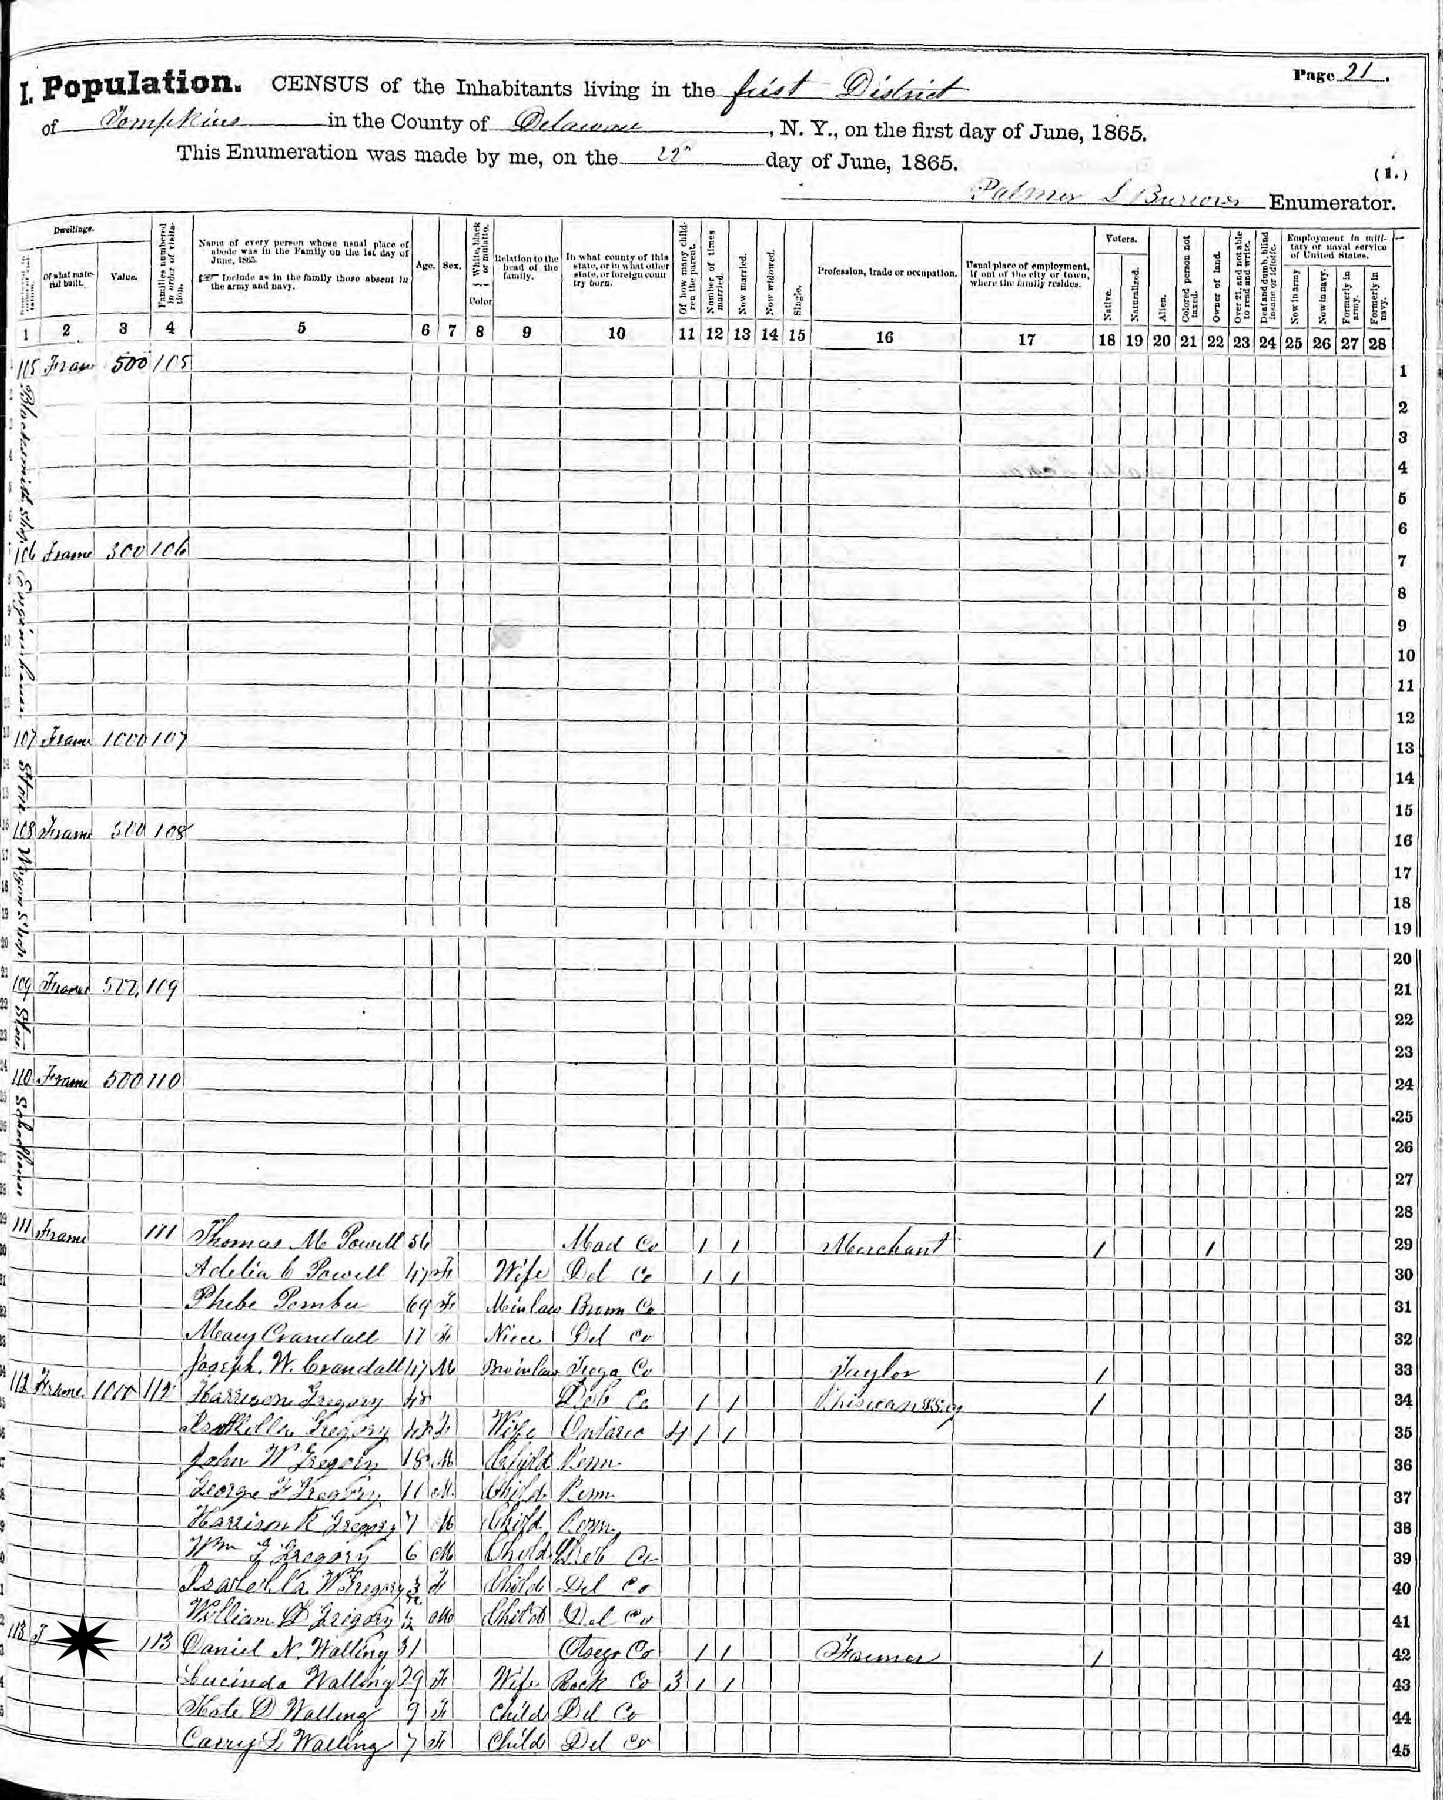 Page 21.
I. Population. CENSUS of the Inhabitants living in the first District
of Tompkins in the County of Delaware, N. Y., on the first day of June, 1865.
This Enumeration was made by me, on the 22 day of June, 1865.
(1.)
Palmer L Burrows Enumerator.
Dwellings.
Of what material built.
Value.
Families numbered in order of visitation.
Name of every person whose usual place of abode was in the Family on the 1st day of June, 1865.
Include as in the family those absent in the army and navy.
Age.
Sex.
White, black or mulatto.
Color
Relation to the head of the family.
In what county of this state, or in what other state, or foreign country born.
Of how many children the parent.
Number of times married.
Now married.
Now widowed.
Single.
Profession, trade or occupation.
Usual place of employment, if out of the city or town, where the family resides.
Voters.
Native.
Naturalized.
Alien.
Colored person not taxed.
Owner of land.
Over 21, and not able to read and write.
Deaf and dumb, blind insane or idiotic.
Employment in military or naval service of United States.
Now in army
Now in navy.
Formerly in army.
Formerly in navy.
1 2 3 4 5 6 7 8 9 10 11 12 13 14 15 16 17 18 19 20 21 22 23 24 25 26 27 28
Fram 500 105 1
Blacksmith Shop
2
3
4
5
6
106 Frame 300 106 7
8
9
10
11
12
107 Frame 1000 107 13
Store
14
15
108 Frame 300 108 16
Wagon Shop
17
18
19
20
109 Frame 109 21
Store
22
23
110 Frame 500 110 24
School house
25
26
27
28
111 Frame 111 Thomas M Powell 56 Mad Co 1 1 Merchant 1 1 29
Adelia C Powell 47 Fe Wife Del Co 1 1 30
Phebe 69 Fe Minlaw Broom Co 31
Mary Crandall 17 Fe Niece Del Co 32
Joseph. W. Crandall 47 M Broinlaw Tioga Co Taylor 1 33
112 Frame 1000 112 Harrison Gregory 48 Del Co 1 1 1 34
Gregory Fe Wife Ontario 4 1 1 35
John W Gregory 18 M Child Penn 36
George F Gregory 11 M. Child Penn 37
Harrison R Gregory 7 M Child Penn 38
Wm Gregory 6 M Child Del Co 39
W Gregory Fe Child Del Co 40
William D Gregory M Child Del Co 41
113 F 113 Daniel N. Walling 31 Otsego Co 1 1 Farmer 1 42
Lucinda Walling 29 Fe Wife Rock Co 3 1 1 43
Kate D Walling 9 Fe Child Del Co 44
Carry L Walling 7 Fe Child Del Co 45